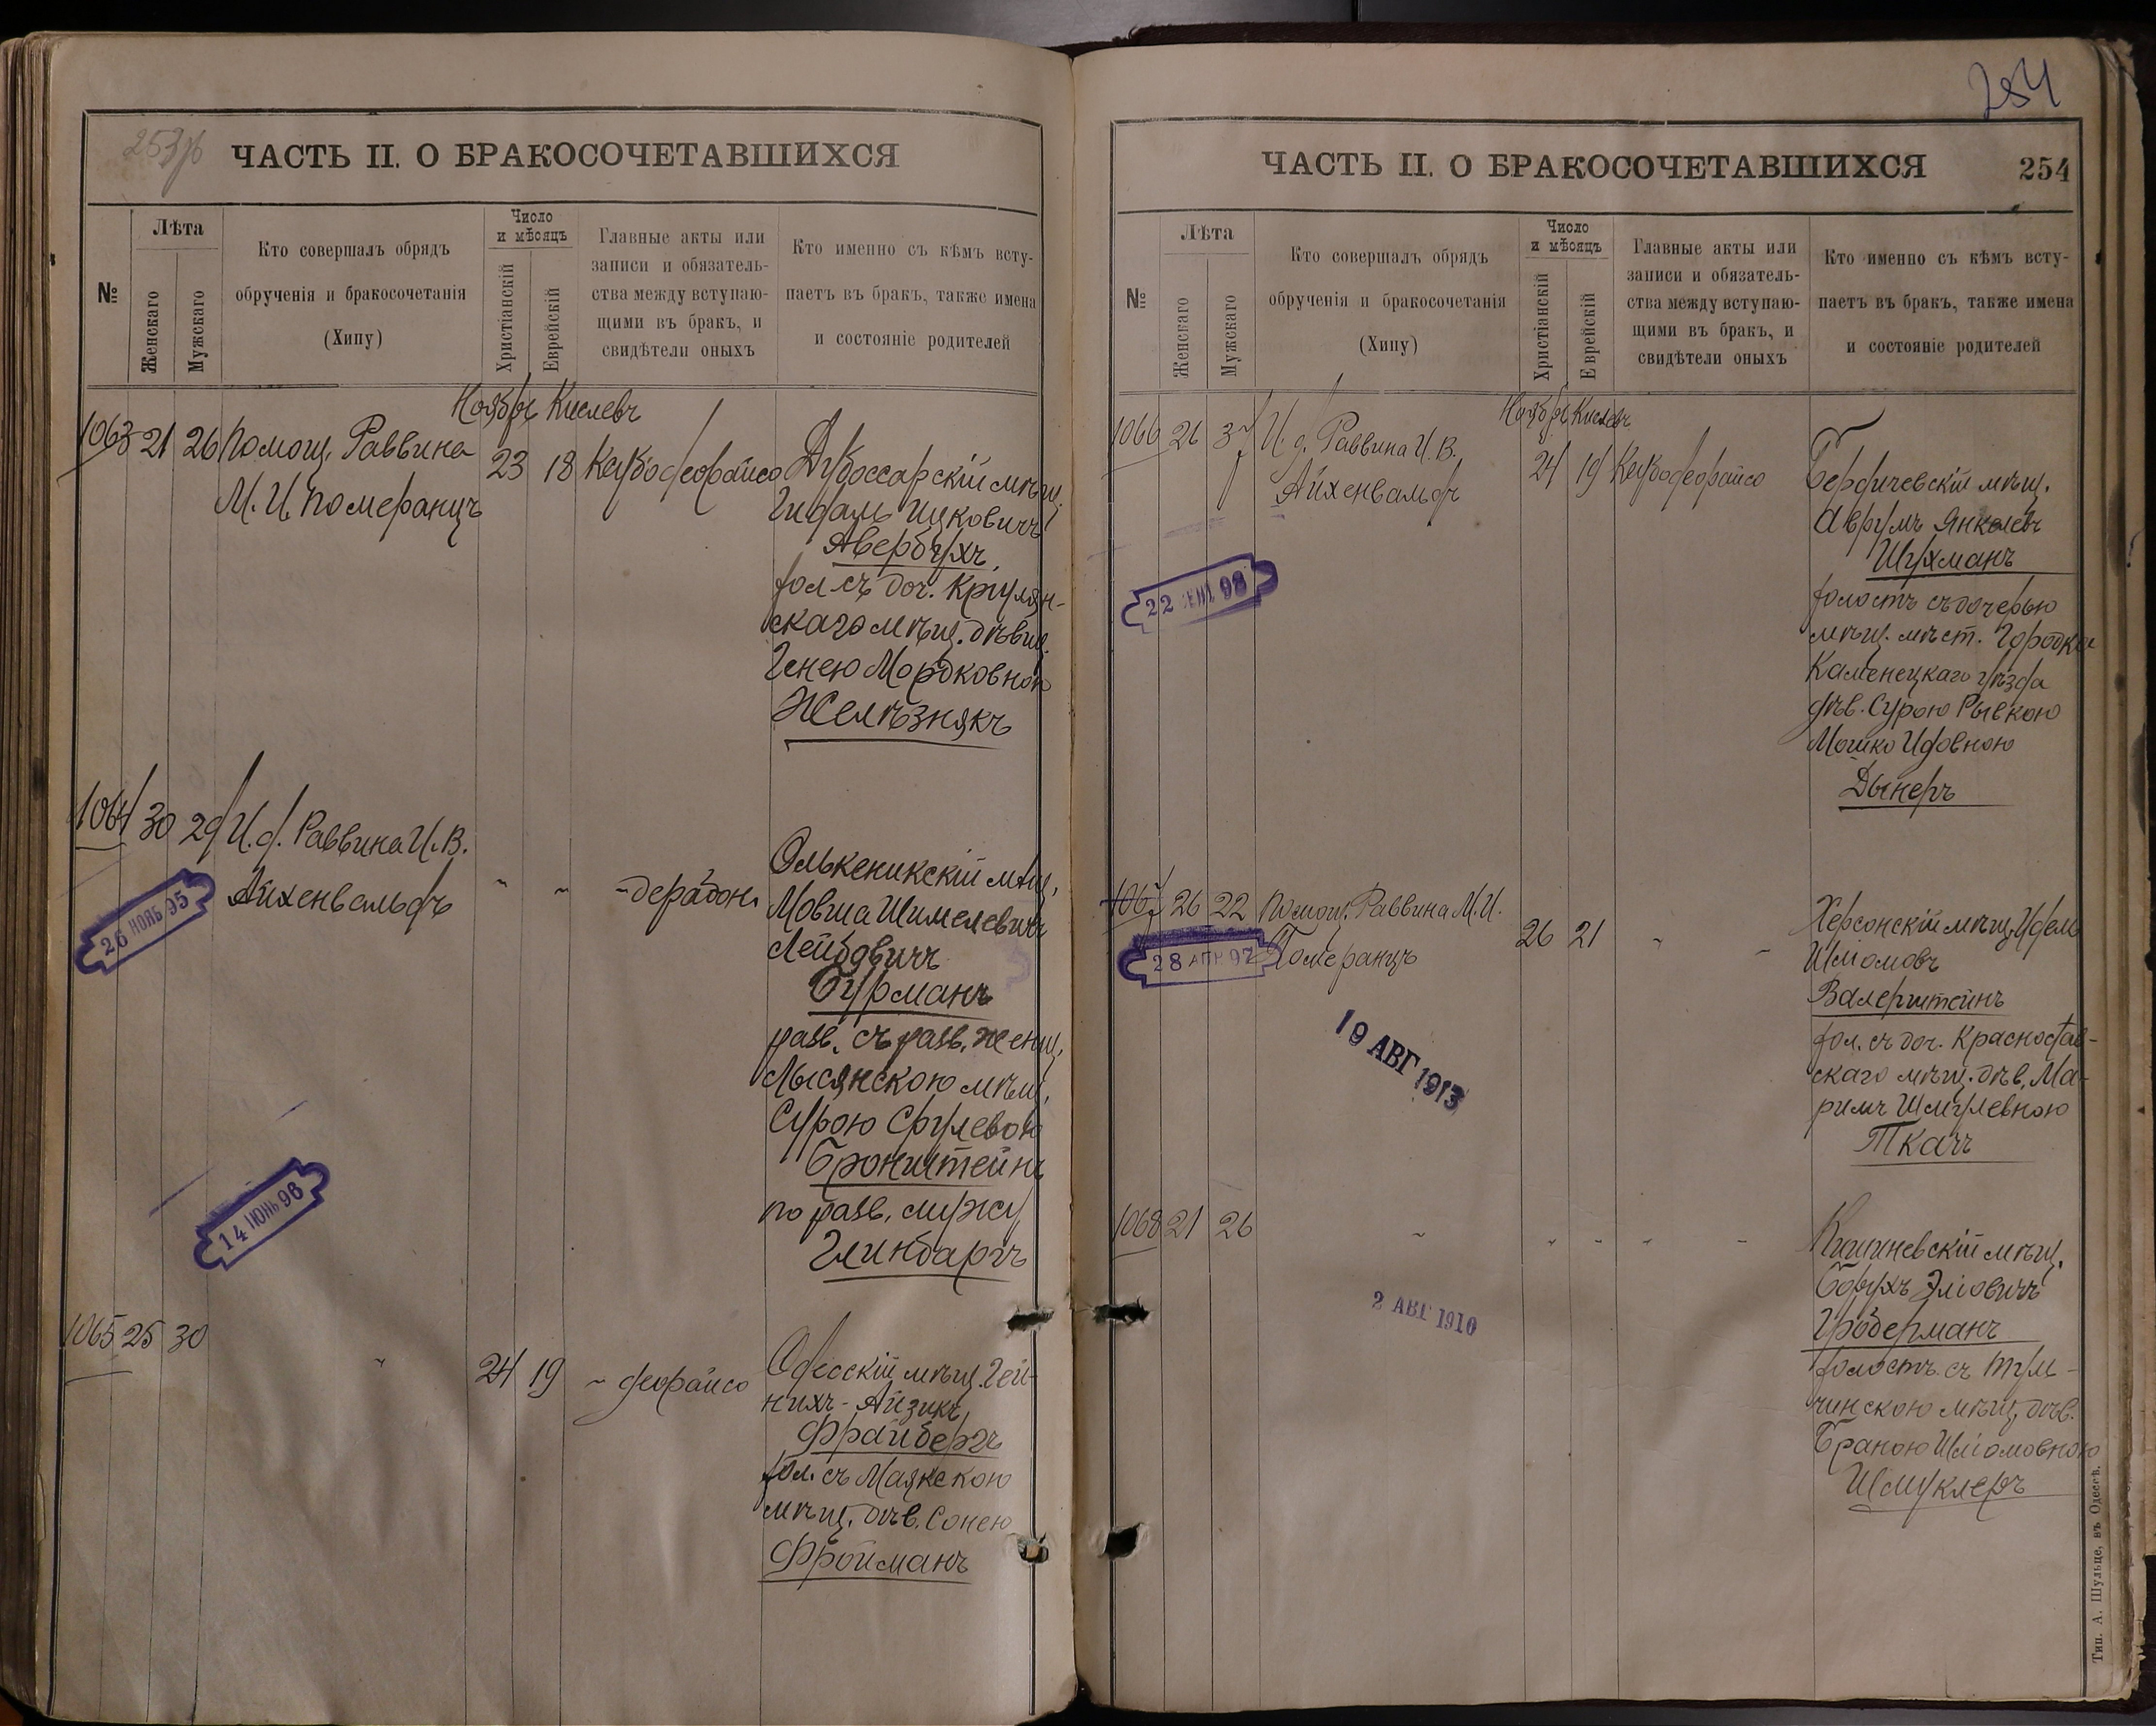 253об
ЧАСТЬ II. О БРАКОСОЧЕТАВШИХСЯ
№
Лѣта
Женскаго
Мужскаго
Кто совершалъ обрядъ
обрученія и бракосочетанія
(Хипу)
Число
и мѣсяцъ
Христіанскій
Еврейскій
Главные акты или
записи и обязатель-
ства между вступаю-
щими въ бракъ, и
свидѣтели оныхъ
Кто именно съ кѣмъ всту-
паетъ въ бракъ, также имена
и состояніе родителей
Ноябрь Кислевъ
1063 21 26 Помощ. Раввина
М. И. Померанцъ
23 18 Кесубо деорайсо
Дубоссарскій мѣщ.
Гидаль Ицковичъ
Авербухъ,
хол. съ доч. Криулян-
скаго мѣщ. дѣвиц.
Генею Мордковною
Желѣзнякъ
1064 30 29 И. д. Раввина И. В.
Айхенвальдъ
" " ~ дерабонъ
26 НОЯБ 95
Олькеникскій мѣщ.
Мовша Шимелевичъ
Лейбовичъ
Бурманъ
разв. съ разв. женщ.
Лысянскою мѣщ.
Сурою Срулевою
Бронштейнъ
по разв. мужу
Глинбаргъ
14 ІЮНЬ 96
1065 25 30
"
24 19 ~ деорайсо
Одесскій мѣщ. Гей-
нихъ-Айзикъ
Фрайбергъ
хол. съ Маякскою
мѣщ. дѣв. Сонею
Фройманъ
254
ЧАСТЬ II. О БРАКОСОЧЕТАВШИХСЯ
254
№
Лѣта
Женскаго
Мужскаго
Кто совершалъ обрядъ
обрученія и бракосочетанія
(Хипу)
Число
и мѣсяцъ
Христіанскій
Еврейскій
Главные акты или
записи и обязатель-
ства между вступаю-
щими въ бракъ, и
свидѣтели оныхъ
Кто именно съ кѣмъ всту-
паетъ въ бракъ, также имена
и состояніе родителей
Ноябрь Кислевъ
1066 26 37 И. д. Раввина И. В.
Айхенвальдъ
24 19 Кесубо деорайсо
22 98
Бердичевскій мѣщ.
Аврумъ Янкелевъ
Шухманъ
холостъ съ дочерью
мѣщ. мѣст. Городка
Каменецкаго уѣзда
дѣв. Сурою Рывкою
Мошко Идовною
Дынеръ
1067 26 22 Помощ. Раввина М. И.
Померанцъ
26 21 " "
28 АПР 97
19 АВГ 1913
Херсонскій мѣщ. Идель
Шліомовъ
Валерштейнъ
хол. съ доч. Красностав-
скаго мѣщ. дѣв. Ма-
римъ Шмулевною
Ткачъ
1068 21 26
" " " " "
2 АВГ 1910
Кишиневскій мѣщ.
Борухъ Эліовичъ
Гроберманъ
холостъ съ Туль-
чинскою мѣщ. дѣв.
Браною Шліомовною
Шмуклеръ
Тип. А. Шульце, въ Одессѣ.